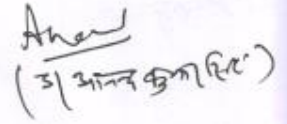 Anand
(डा आनन्द कुमार सिंह)